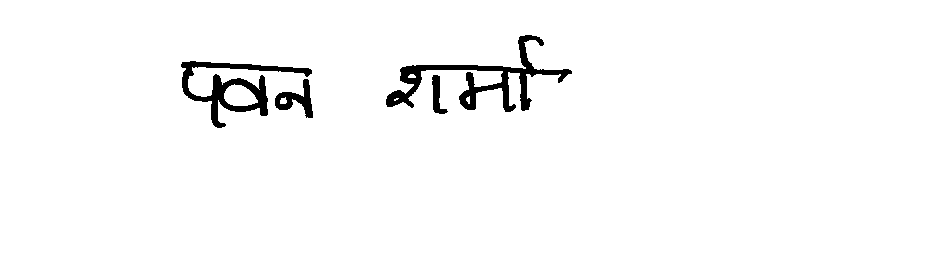 पवन शर्मा